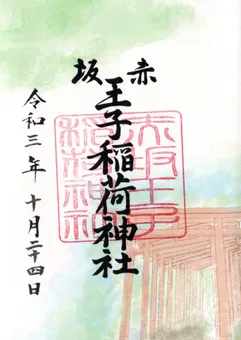 赤坂
王子稲荷神社
令和三年十月二十四日